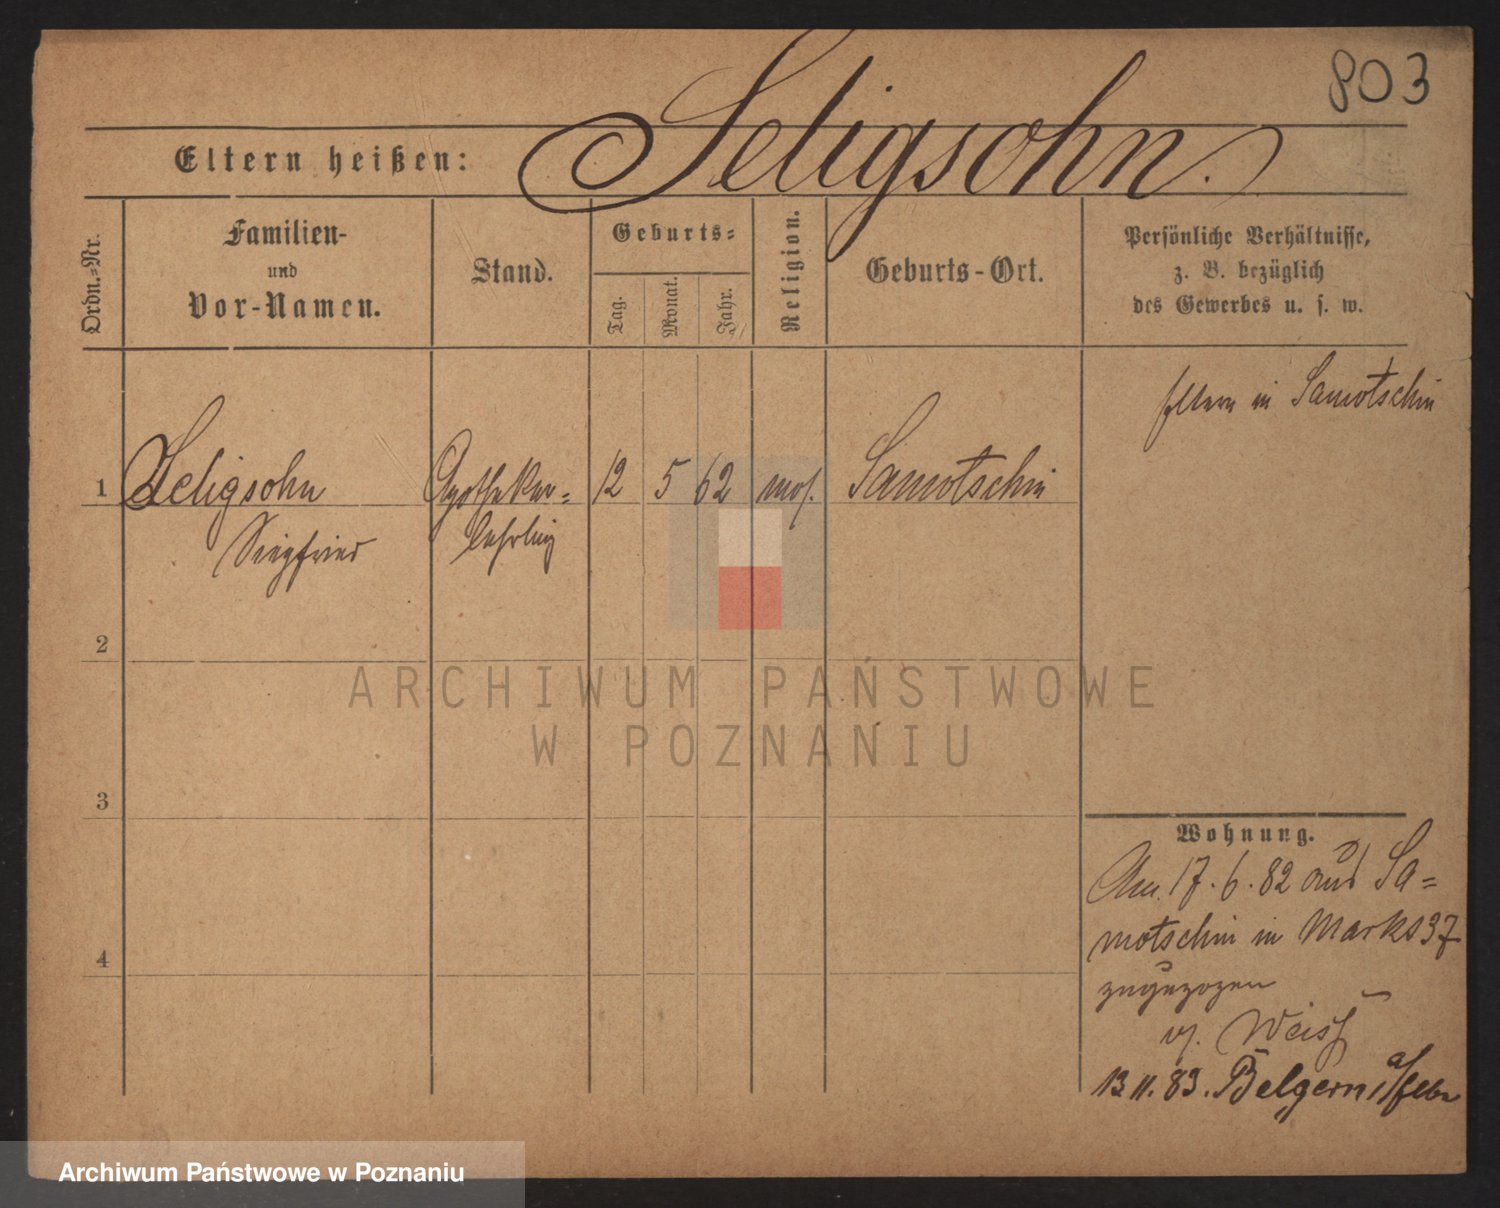 803
Eltern heißen: Seligsohn.
Ordn.=Nr.
Familien-
und
Vor-Namen.
Stand.
Geburts=
Tag.
Monat.
Jahr.
Religion.
Geburts-Ort.
Persönliche Verhältnisse,
z. B. bezüglich
des Gewerbes u. s. w.
Eltern in Samotschin
1 Seligsohn Apotheker= 12 5 62 mos. Samotschin
Siegfried lehrling
2
ARCHIWUM PAŃSTWOWE
W POZNANIU
3
4
Wohnung.
Am 17. 6. 82 aus Sa=
motschin in Markt 37
zugezogen
b/. Weiß
13 11. 83. Belgern a/Elbe
Archiwum Państwowe w Poznaniu